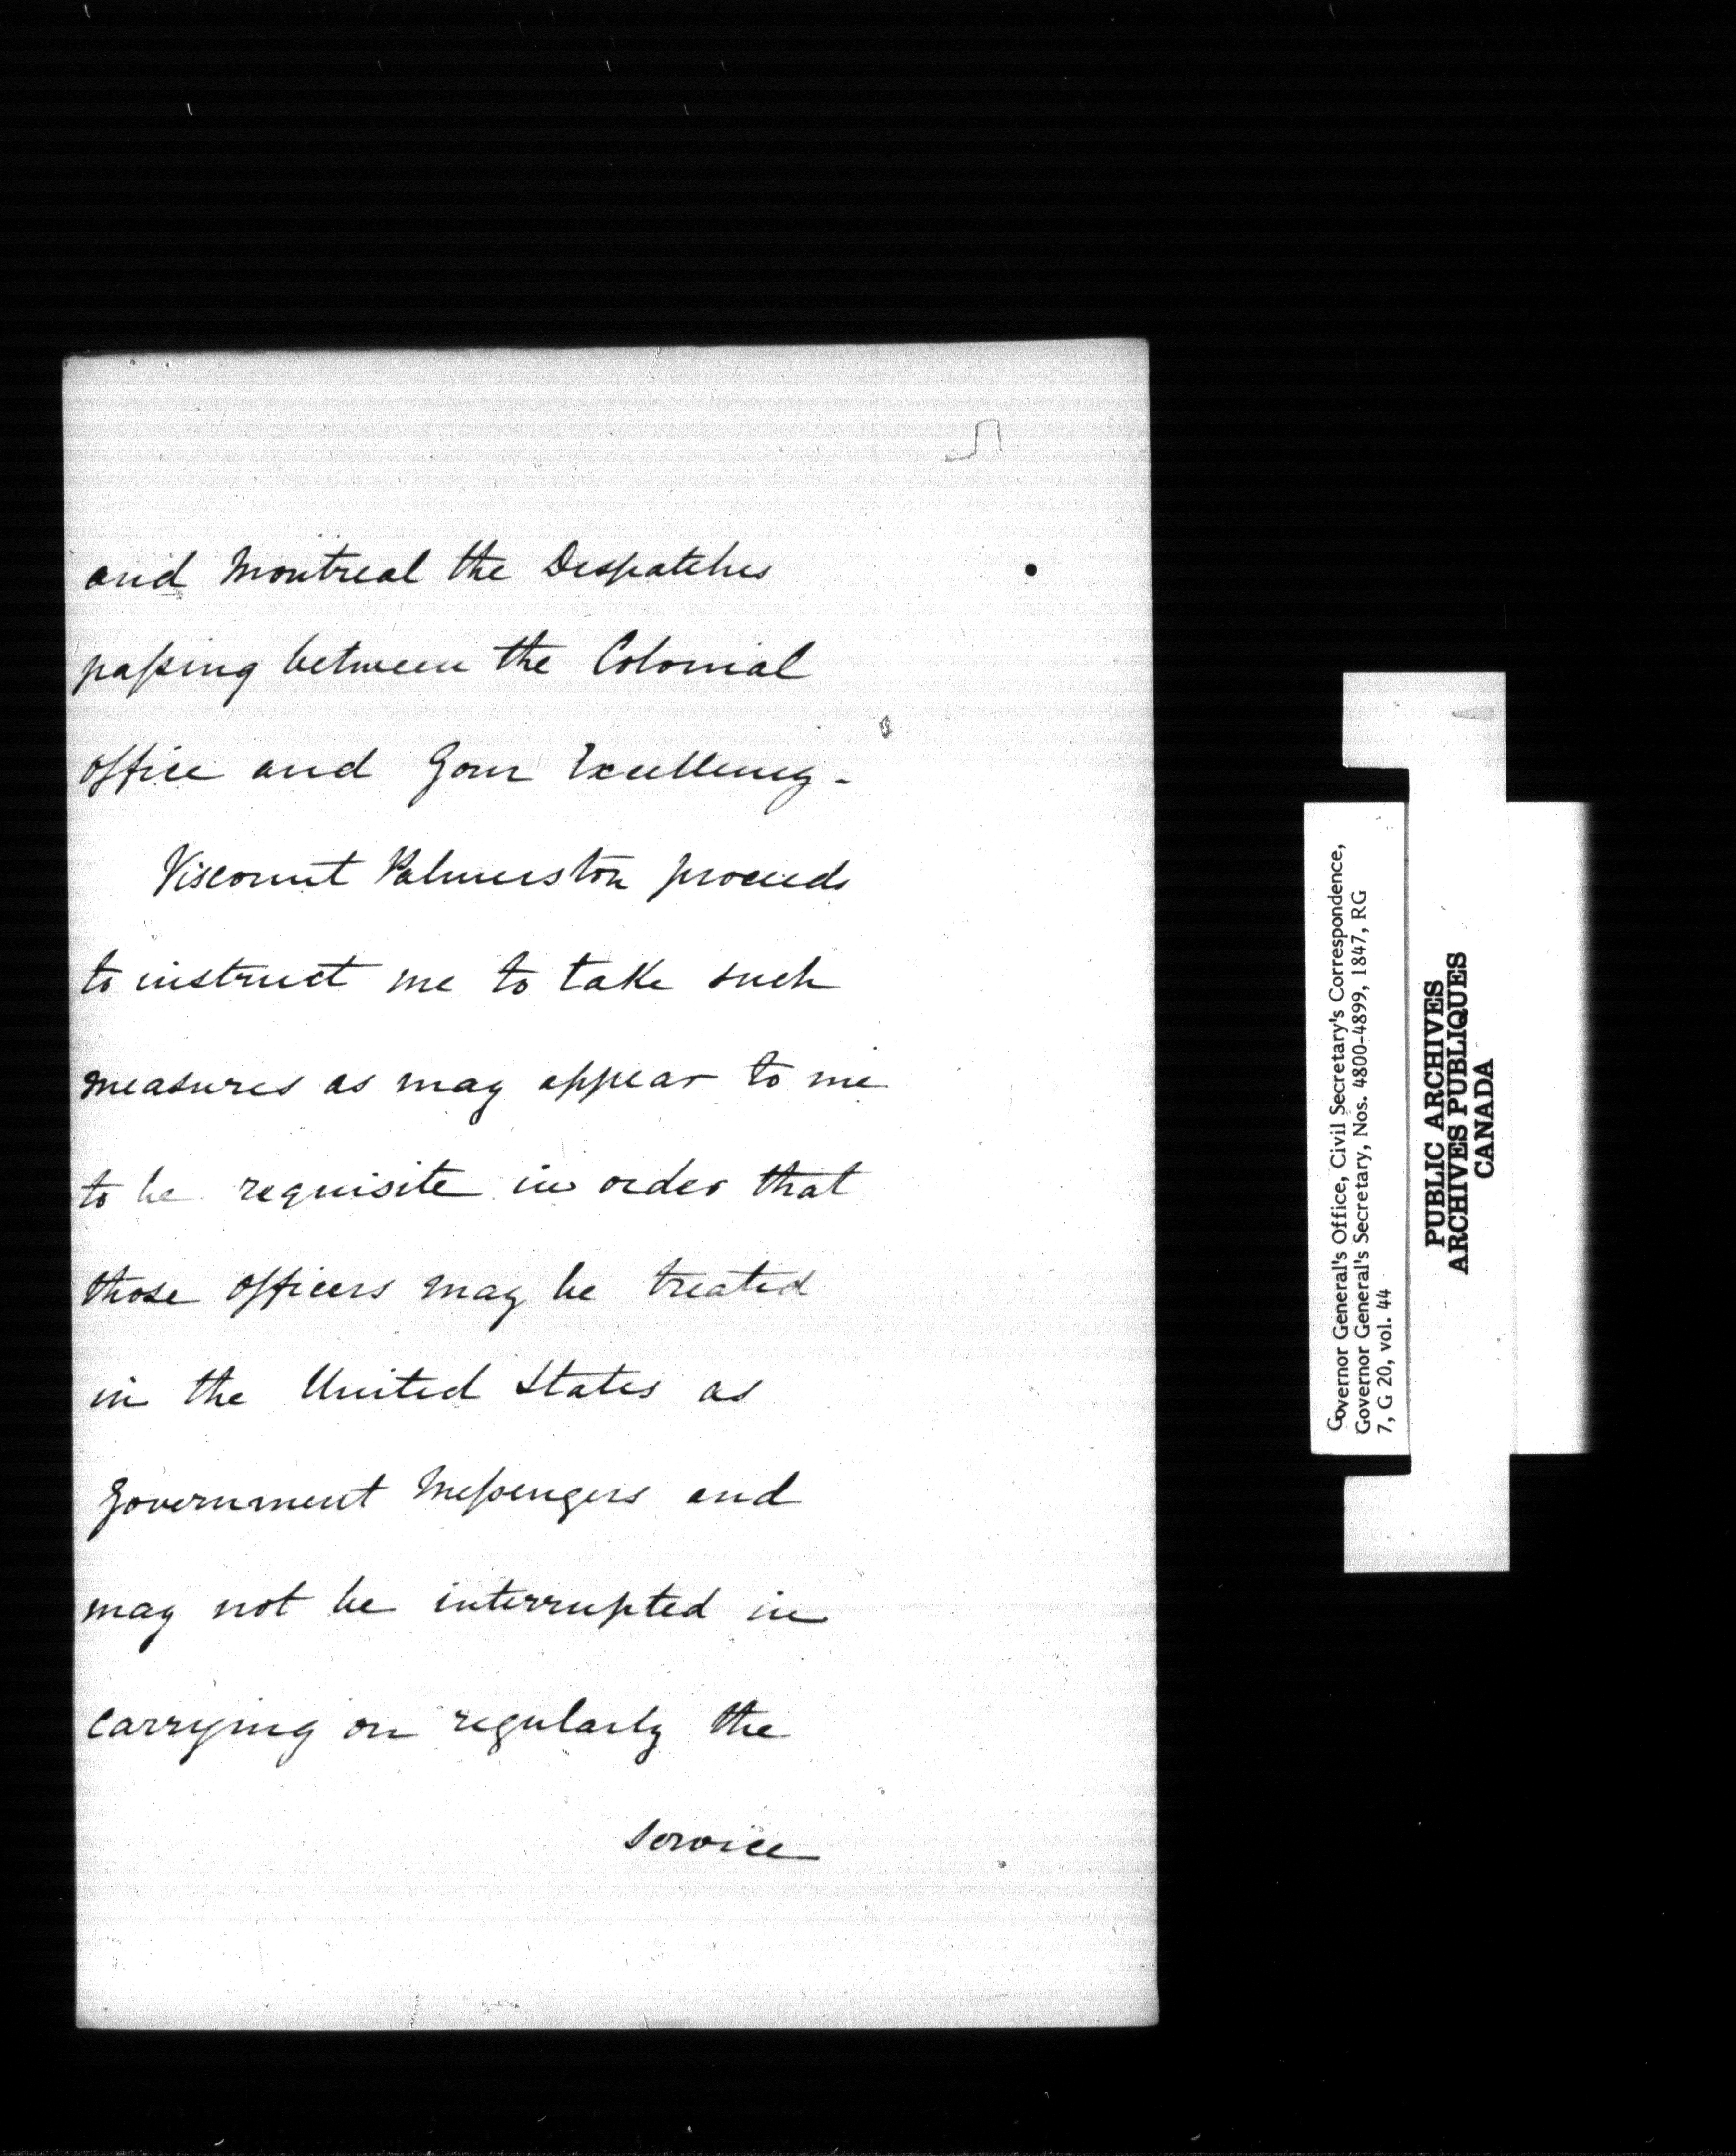 and Montreal the Despatches
passing between the Colonial
office and Your Excellency.
Viscount Palmerston proceeds
to instruct me to take such
measures as may appear to me
to be requisite in order that
those officers may be treated
in the United States as
Government Messengers and
may not be interrupted in
carrying on regularly the
service
Governor General's Office, Civil Secretary's Correspondence,
Governor General's Secretary, Nos. 4800-4899, 1847, RG
7, G 20, vol. 44
PUBLIC ARCHIVES
ARCHIVES PUBLIQUES
CANADA